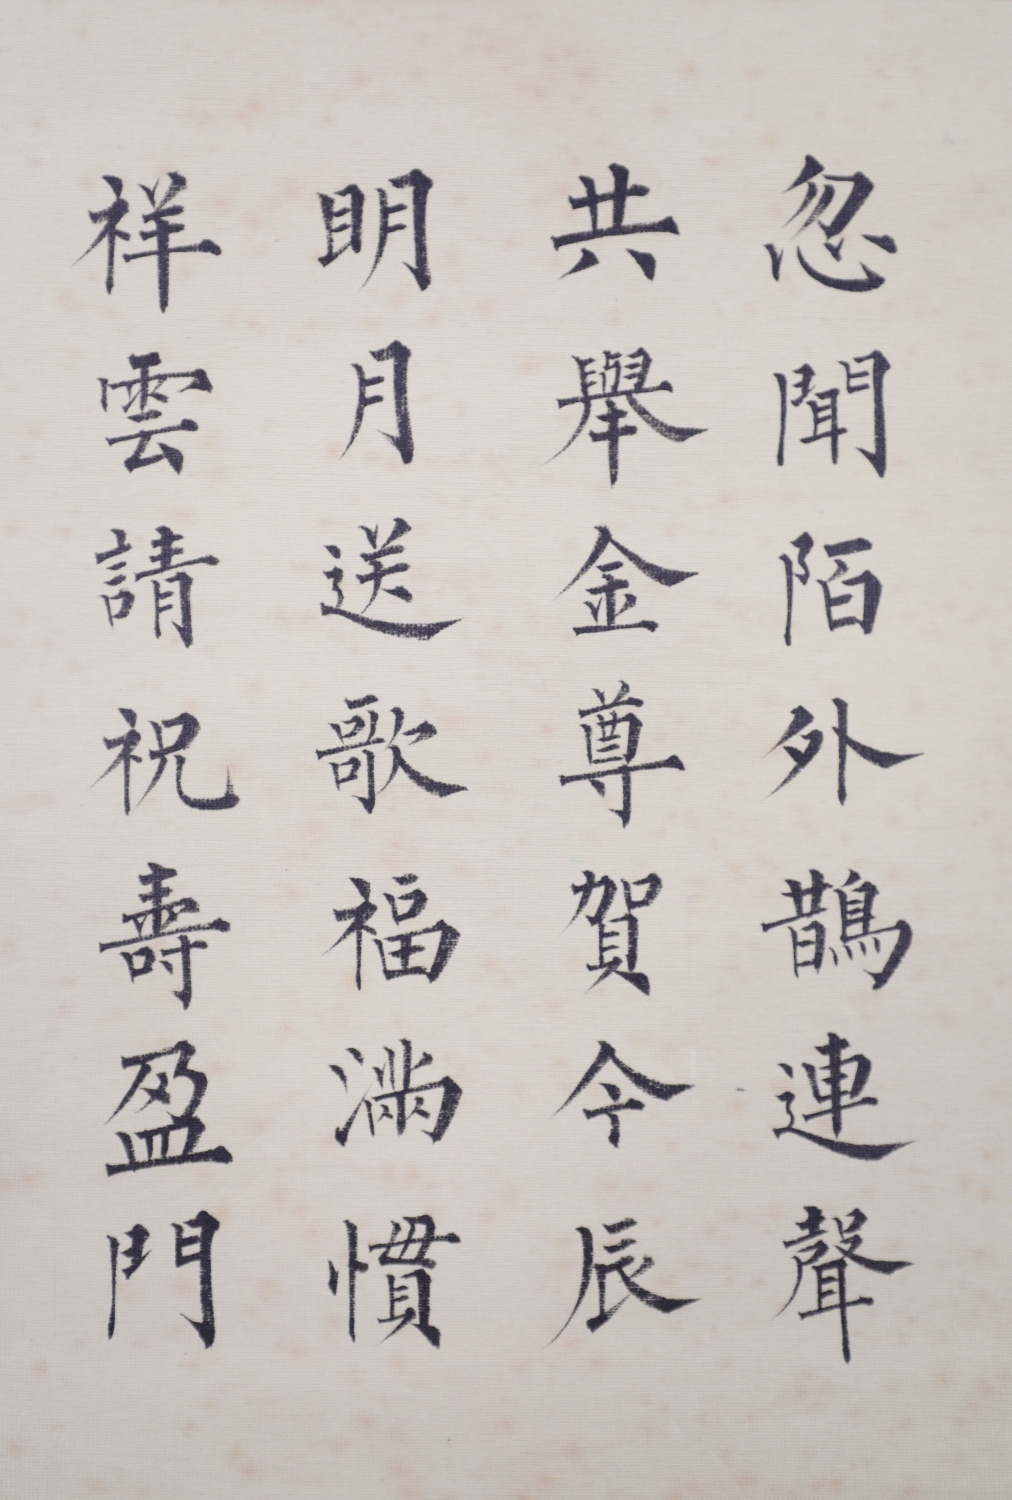 忽聞陌外鵲連聲
共舉金尊賀今辰
明月送歌福滿慣
祥雲請祝壽盈門